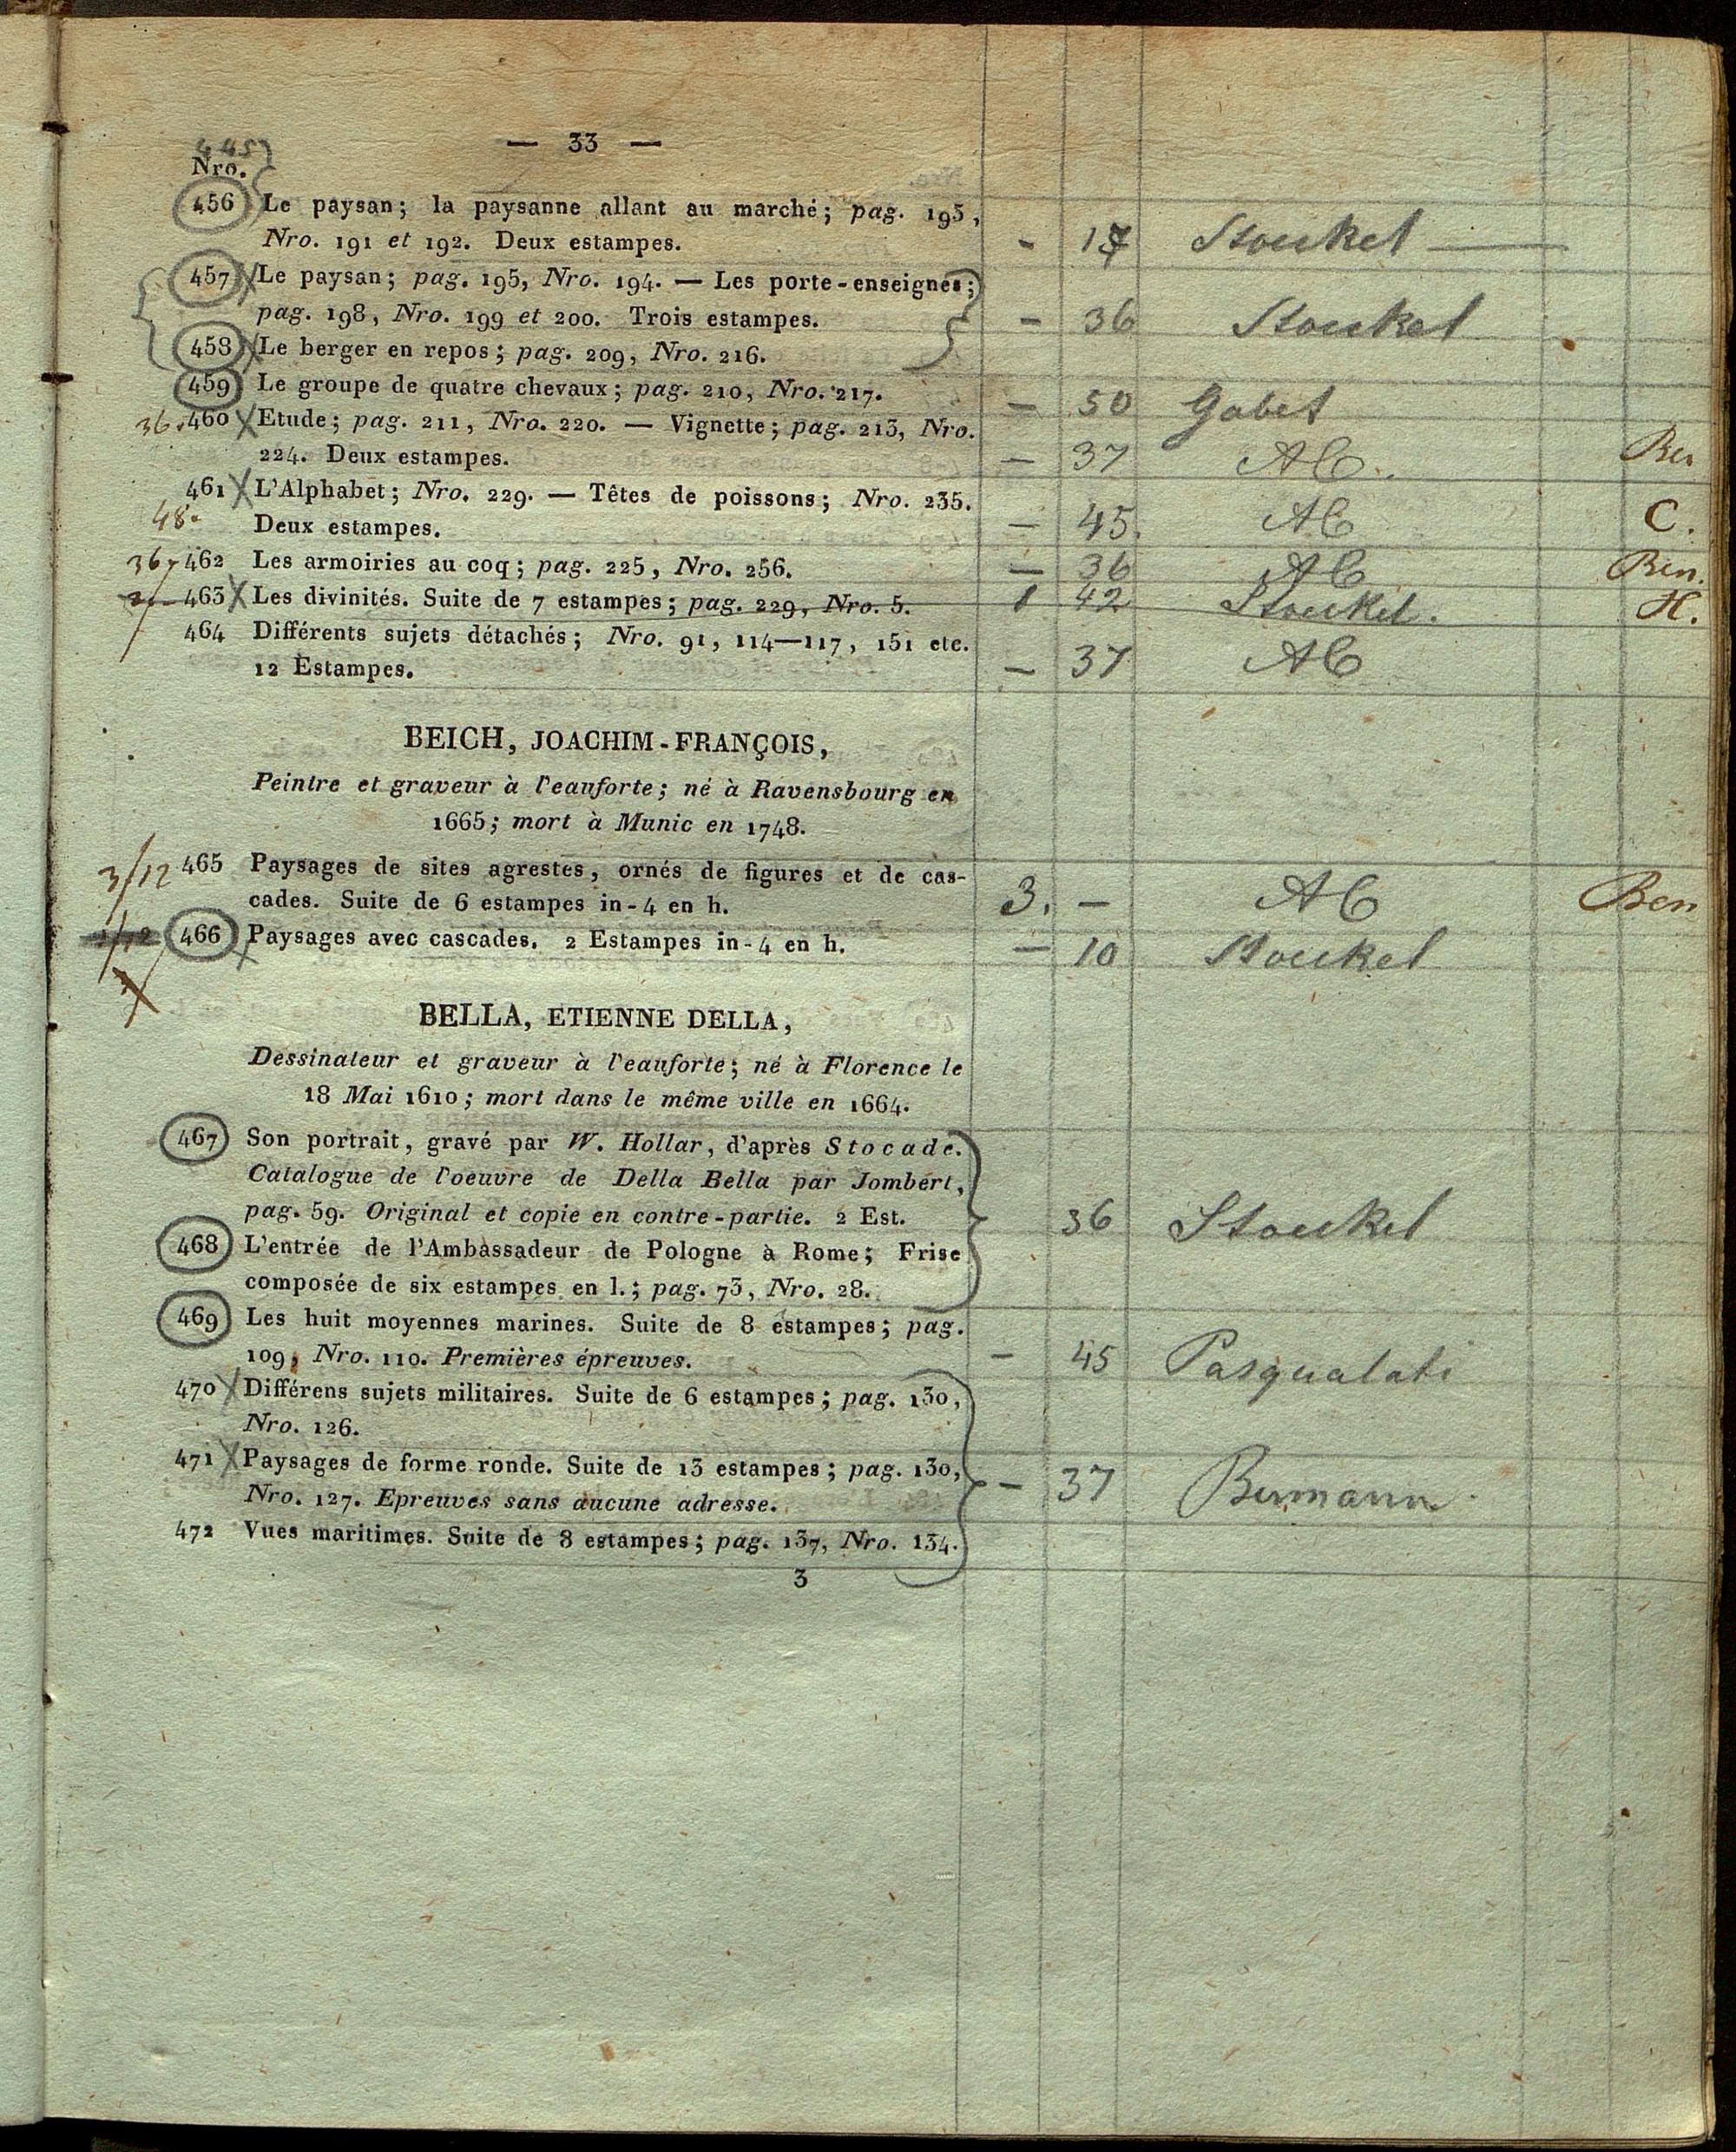 — 33 —
445
Nro.
456 Le paysan; la paysanne allant au marché; pag. 195,
Nro. 191 et 192. Deux estampes. - 17 Stoeckel
457 Le paysan; pag. 195, Nro. 194. — Les porte-enseignes;
pag. 198, Nro. 199 et 200. Trois estampes. - 36 Stoeckel
458 Le berger en repos; pag. 209, Nro. 216.
459 Le groupe de quatre chevaux; pag. 210, Nro. 217. — 50 Gabet
36. 460 Etude; pag. 211, Nro. 220. — Vignette; pag. 213, Nro.
224. Deux estampes. — 37 AC. Ben
461 L'Alphabet; Nro. 229. — Têtes de poissons; Nro. 235.
48. Deux estampes. — 45. AC C.
36 462 Les armoiries au coq; pag. 225, Nro. 256. — 36 AC Ben.
463 Les divinités. Suite de 7 estampes; pag. 229, Nro. 5. 1 42 Stoeckel. H.
464 Différents sujets détachés; Nro. 91, 114—117, 151 etc.
12 Estampes. — 37 AC
BEICH, JOACHIM-FRANÇOIS,
Peintre et graveur à l'eauforte; né à Ravensbourg en
1665; mort à Munic en 1748.
3/12 465 Paysages de sites agrestes, ornés de figures et de cas-
cades. Suite de 6 estampes in-4 en h. 3. — AC Ben
466 Paysages avec cascades. 2 Estampes in-4 en h. — 10 Stoeckel
BELLA, ETIENNE DELLA,
Dessinateur et graveur à l'eauforte; né à Florence le
18 Mai 1610; mort dans le même ville en 1664.
467 Son portrait, gravé par W. Hollar, d'après Stocade.
Catalogue de l'oeuvre de Della Bella par Jombert,
pag. 59. Original et copie en contre-partie. 2 Est. 36 Stoeckel
468 L'entrée de l'Ambassadeur de Pologne à Rome; Frise
composée de six estampes en l.; pag. 73, Nro. 28.
469 Les huit moyennes marines. Suite de 8 estampes; pag.
109, Nro. 110. Premières épreuves. — 45 Pasqualati
470 Différens sujets militaires. Suite de 6 estampes; pag. 130,
Nro. 126.
471 Paysages de forme ronde. Suite de 13 estampes; pag. 130,
Nro. 127. Epreuves sans aucune adresse. — 37 Bermann
472 Vues maritimes. Suite de 8 estampes; pag. 137, Nro. 134.
3